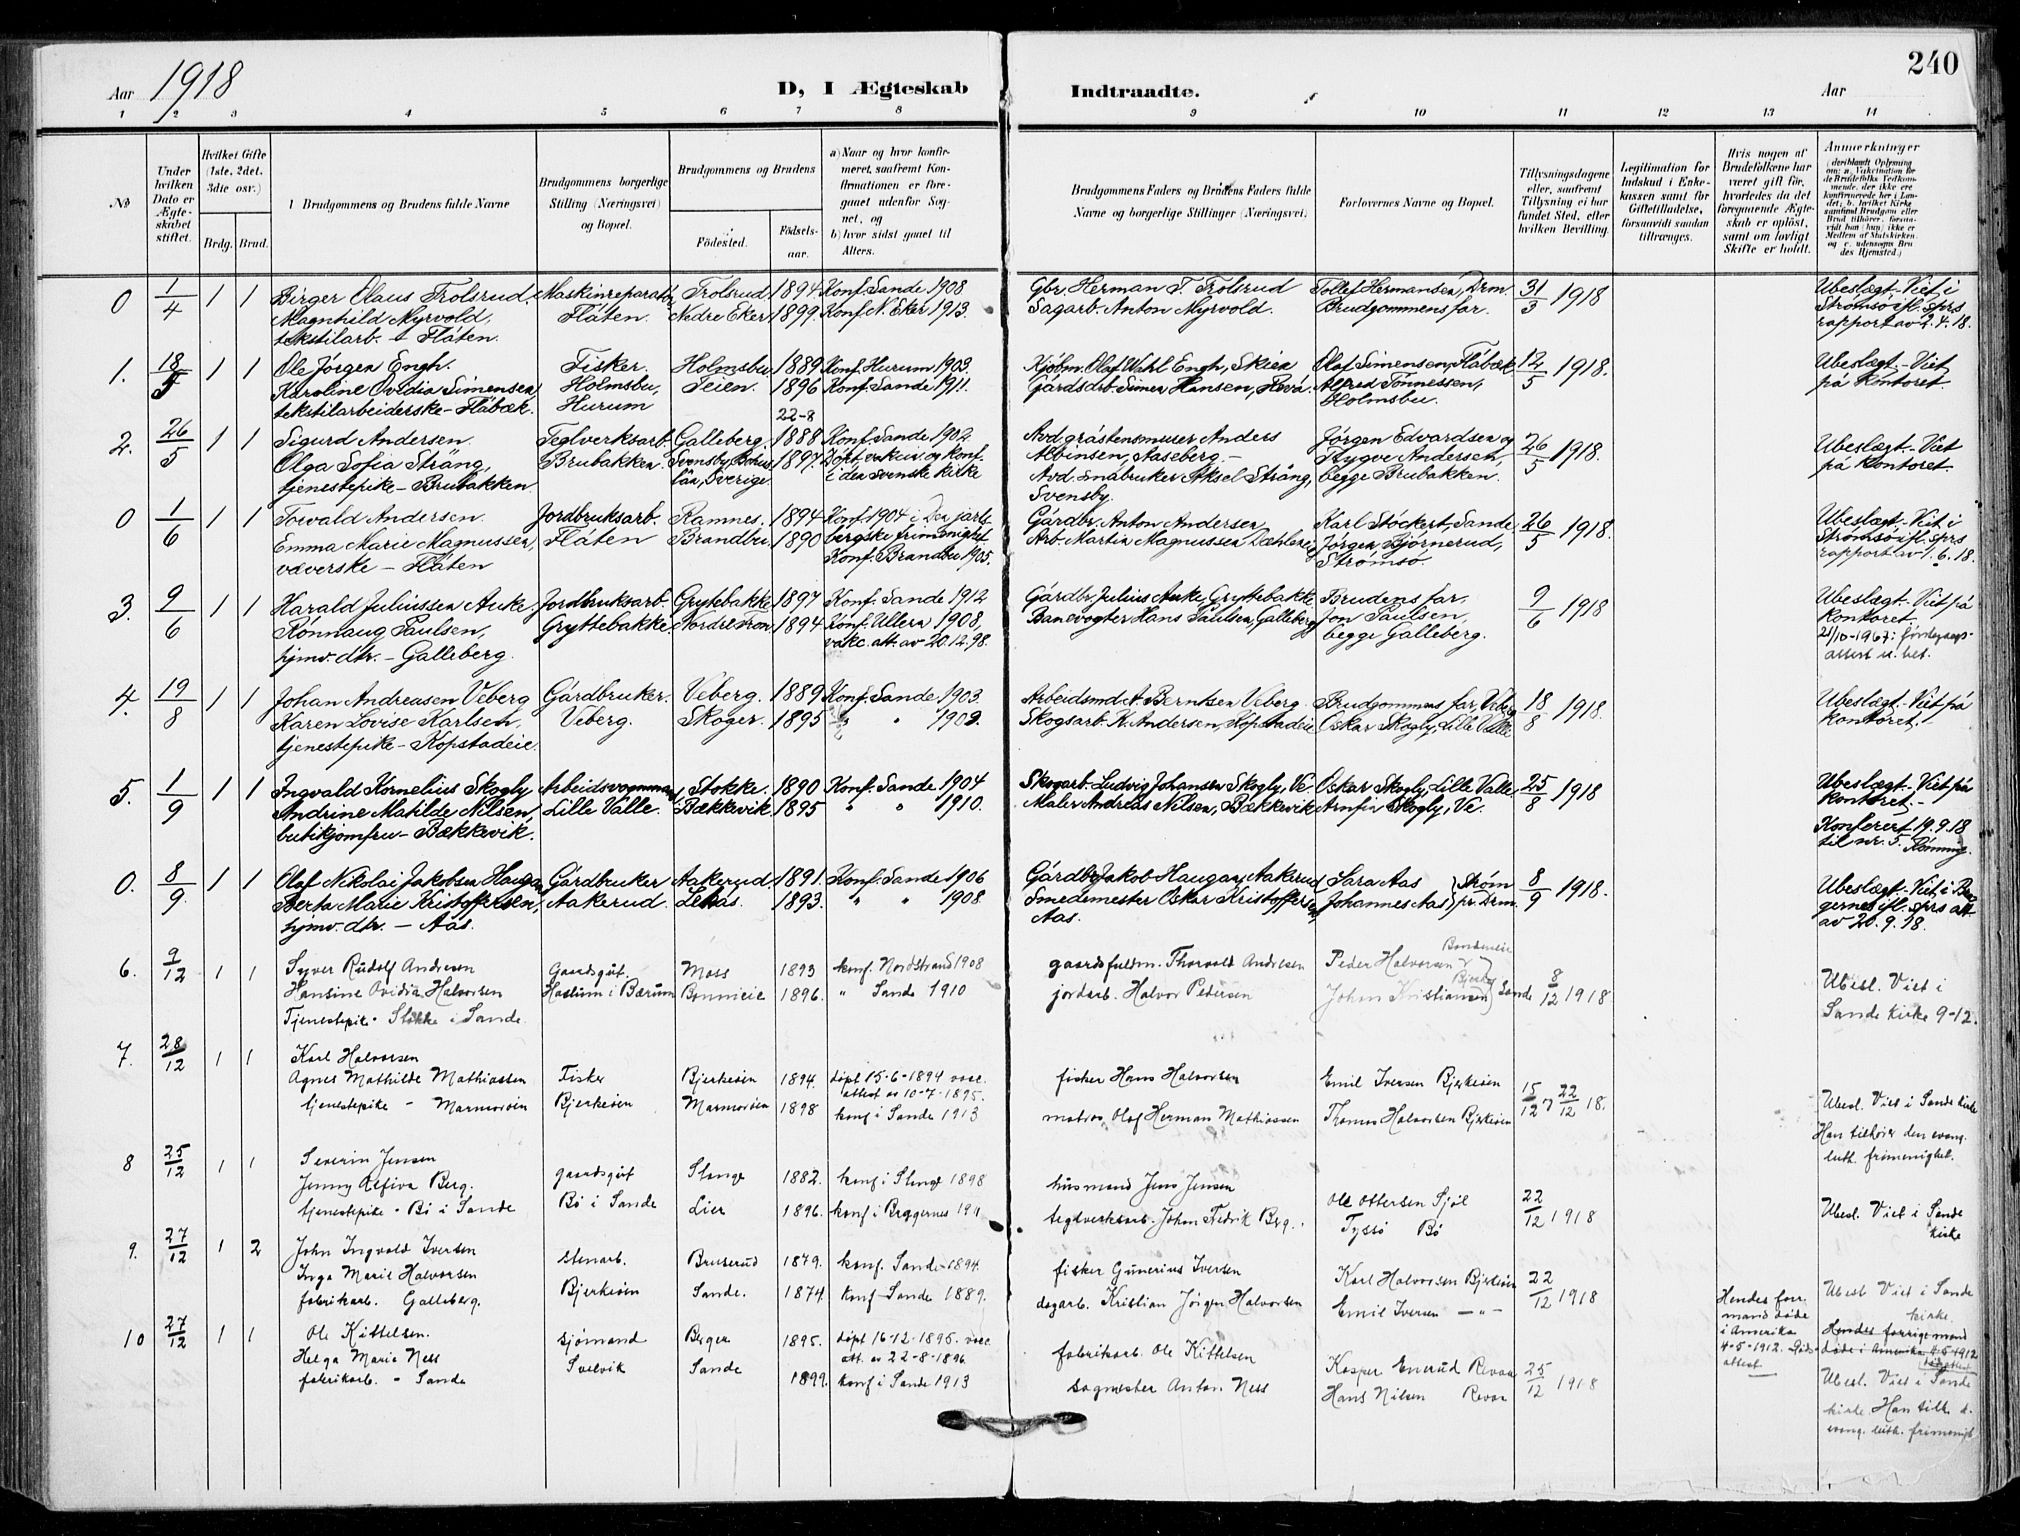 240
Aar 1918
D, I Ægteskab Indtraadte.
Aar
1 2 3 4 5 6 7 8 9 10 11 12 13 14
No
Under hvilken Dato er Ægteskabet stiftet.
Hvilket Gifte (1ste, 2det, 3die osv.)
Brdg. Brud.
Brudgommens og Brudens fulde Navne
Brudgommens borgerlige Stilling (Næringsvei) og Bopæl.
Brudgommens og Brudens
Fødested. Fødselsaar.
a) Naar og hvor konfirmeret, saafremt Konfirmationen er foregaaet udenfor Sognet, og
b) hvor sidst gaaet til Alters.
Brudgommens Faders og Brudens Faders fulde Navne og borgerlige Stillinger (Næringsvei)
Forlovernes Navne og Bopæl.
Tillysningsdagene eller, saafremt Tillysning ei har fundet Sted, efter hvilken Bevilling.
Legitimation for Indskud i Enkekassen samt for Giftetilladelse, forsaavidt saadan tiltrænges.
Hvis nogen af Brudefolkene har været gift før, hvorledes da det foregaaende Ægteskab er opløst, samt om lovligt Skifte er holdt.
Anmerkninger
(deriblandt Oplysning om: a. Vakcination for de Brudefolks Vedkommende, der ikke ere konfirmerede her i Landet; b. hvilket Kirkesamfund Brudgom eller Brud tilhører, forsaavidt han (hun) ikke er Medlem af Statskirken, og c. udensogns Brudes Hjemsted.)
0 1/4 1 1 Birger Olaus Trolsrud, Maskinreparatør Trolsrud 1894 Konf. Sande 1908 Gbr. Herman T. Trolsrud Tollef Hermansen, Drm. 31/3 1918 Ubeslægt. - Viet i
Magnhild Myrvold, Flåten. Nedre Eker 1899. Konf. N. Eker 1913. Sagarb. Anton Myrvold. Brudgommens far. Strømsø ifl. sprs
tekstilarb. - Flåten. rapport av 2.4.18.
1. 18/5 1 1 Ole Jørgen Engh. Fisker Holmsbu 1889 Konf. Hurum 1903. Kjøbm. Olaf Wahl Engh, Skien Olaf Simensen, Flåbæk 12/5 1918. Ubeslægt - Viet
Karoline Ovidia Simensen Holmsbu, Teien. 1896 Konf. Sande 1911. Gårdsarb. Simen Hansen, Alfred Tønnessen, på kontoret.
tekstilarbeiderske - Flåbæk. Hurum 22-8 Holmsbu.
2. 26/5 1 1 Sigurd Andersen. Teglverksarb. Galleberg. 1888 Konf. Sande 1902. Avd. gråstensmurer Anders Jørgen Edvardsen og 26/5 1918. Ubeslægt. - Viet
Olga Sofia Sträng, Brubakken. Svensby, Bohus 1897. Døpt, vakc. og konf. Albinsen, Aaseberg. - Trygve Andersen, på kontoret.
tjenestepike - Brubakken. län, Sverige i den svenske kirke Avd. småbruker Aksel Sträng, begge Brubakken.
Svensby.
0 1/6 1 1 Torvald Andersen. Jordbruksarb. Ramnes. 1894 Konf. 1904 i Den jarls Gårdbr. Anton Andersen Karl Støckert, Sande 26/5 1918. Ubeslægt - Viet i
Emma Marie Magnussen, Flåten Brandbu. 1890 bergske frimenighet. Arb. Martin Magnussen Jørgen Bjørnerud, Strømsø ifl. sprs
væverske - Flåten Konf. Brandbu 1905. Strømsø. rapport av 1.6.18.
3. 9/6 1 1 Harald Juliussen Auke. Jordbruksarb. Gryttebakke 1897 Konf. Sande 1912 Gårdbr. Julius Auke, Gryttebakke Brudens far, 9/6 1918 Ubeslægt. - Viet på
Rønnaug Paulsen, Gryttebakke. Nordre Fron 1894 Konf. Ullern 1908, Banevogter Hans Paulsen, Galleberg Jon Paulsen, kontoret.
hjmv. dtr. - Galleberg. vakc. att. av 20.12.98. begge Galleberg. 21/10-1967: fødselsattest u. bet.
4. 19/8 1 1 Johan Andreasen Veberg Gårdbruker. Veberg. 1889 Konf. Sande 1903. Arbeidsmd. A. Berntsen Veberg. Brudgommens far, Veberg 18/8 1918. Ubeslægt - Viet på
Karen Lovise Karlsen, Veberg. Skoger. 1895 " " 1909. Skogsarb. K. Andersen, Kopstadeie Oskar Skogly, Lille Valle kontoret.
tjenestepike - Kopstadeie.
5. 1/9 1 1 Ingvald Kornelius Skogly Arbeidsvognmann Stokke. 1890 Konf. Sande 1904 Skogarb. Ludvig Johansen Skogly, Ve. Oskar Skogly, Lille Valle 25/8 1918 Ubeslægt - Viet på
Andrine Matilde Nilsen, Lille Valle. Bækkevik 1895 " " 1910. Maler Andreas Nilsen, Bækkevik Arnfin Skogly, Ve. kontoret. -
butikjomfru - Bækkevik. Konferert 19.9.18
til nr. 5. Rønning.
0. 8/9 1 1 Olaf Nikolai Jakobsen Haugan Gårdbruker Aakerud. 1891. Konf. Sande 1906 Gårdbr. Jakob Haugan, Aakerud Sara Aas } Strøm 8/9 1918. Ubeslægt. - Viet i Bra
Berta Marie Kristoffersen, Aakerud. 1893. " " 1908. Smedemester Oskar Kristoffersen Johannes Aas } pr. Drm. gernes ifl. sprs att
hjmv. dtr. - Aas. Aas. av 20.9.18.
6. 9/12 1 1 Syver Rudolf Andresen Gaardsgut. Moss 1893 konf. Nordstrand 1908 gaardsfuldm. Thorvald Andresen Peder Halvorsen 8/12 1918. Ubesl. Viet i
Hansine Ovidia Halvorsen Haslum i Bærum Bonmeie 1896. " Sande 1910 jordarb. Halvor Pedersen Johan Kristiansen Sande Sande kirke 9-12.
Tjenestepik. Stokke i Sande.
7. 28/12 1 1 Karl Halvorsen
Agnes Mathilde Mathiassen Fisker Bjerkeøen 1894. døpt 15-6-1894 vacc. fisker Hans Halvorsen Emil Iversen Bjerkeøen 15/12 og 22/12 18. Ubesl. Viet i Sande kirke
tjenestepike - Marmorøen Bjerkeøen Marmorøen 1898 attest av 10-7-1895. matros Olaf Herman Mathiassen Thomas Halvorsen Bjerkeøen Han tilhører den evang.
konf i Sande 1913 luth. frimenighet.
8 25/12 1 1 Severin Jensen gaardsgut Slange 1882. konf i Slange 1898 husmand Jens Jensen Ole Ottersen Sjøl 22/12 1918 Ubesl. Viet i Sande
Jenny Refiva Berg. Bø i Sande Lier 1896. konf i Bragernes 1911 teglverksarb. Johan Fredrik Berg. Tyssø Bø kirke
tjenestepike - Bø i Sande
9. 27/12 1 2 John Ingvald Iversen stenarb. Bruserud 1879. konf. Sande 1894. fisker Gunerius Iversen Karl Halvorsen Bjerkeøen 22/12 1918 Hendes forr. mand døde i Amerika 4-5-1912. Døds attest Ubesl. Viet i Sande kirke.
Inga Marie Halvorsen Bjerkeøen Sande. 1874. konf Sande 1889. dagarb. Kristian Jørgen Halvorsen Emil Iversen - " - Hendes forrige mand
fabrikarb. Galleberg. døde i Amerika 4-5-1912
10 27/12 1 1 Ole Kittelsen. sjømand Berger 1895. døpt 16-12-1895. vacc fabrikarb. Ole Kittelsen Kasper Enerud Revaa 25/12 1918 Ubesl. Viet i Sande
Helga Marie Ness Svelvik Sande 1899. att. av 22-8-1896. sagmester Anton Ness Hans Nilsen Revaa kirke Han tilh. d.
fabrikarb. - Sande konf i Sande 1913 evang. luth. frimenigh